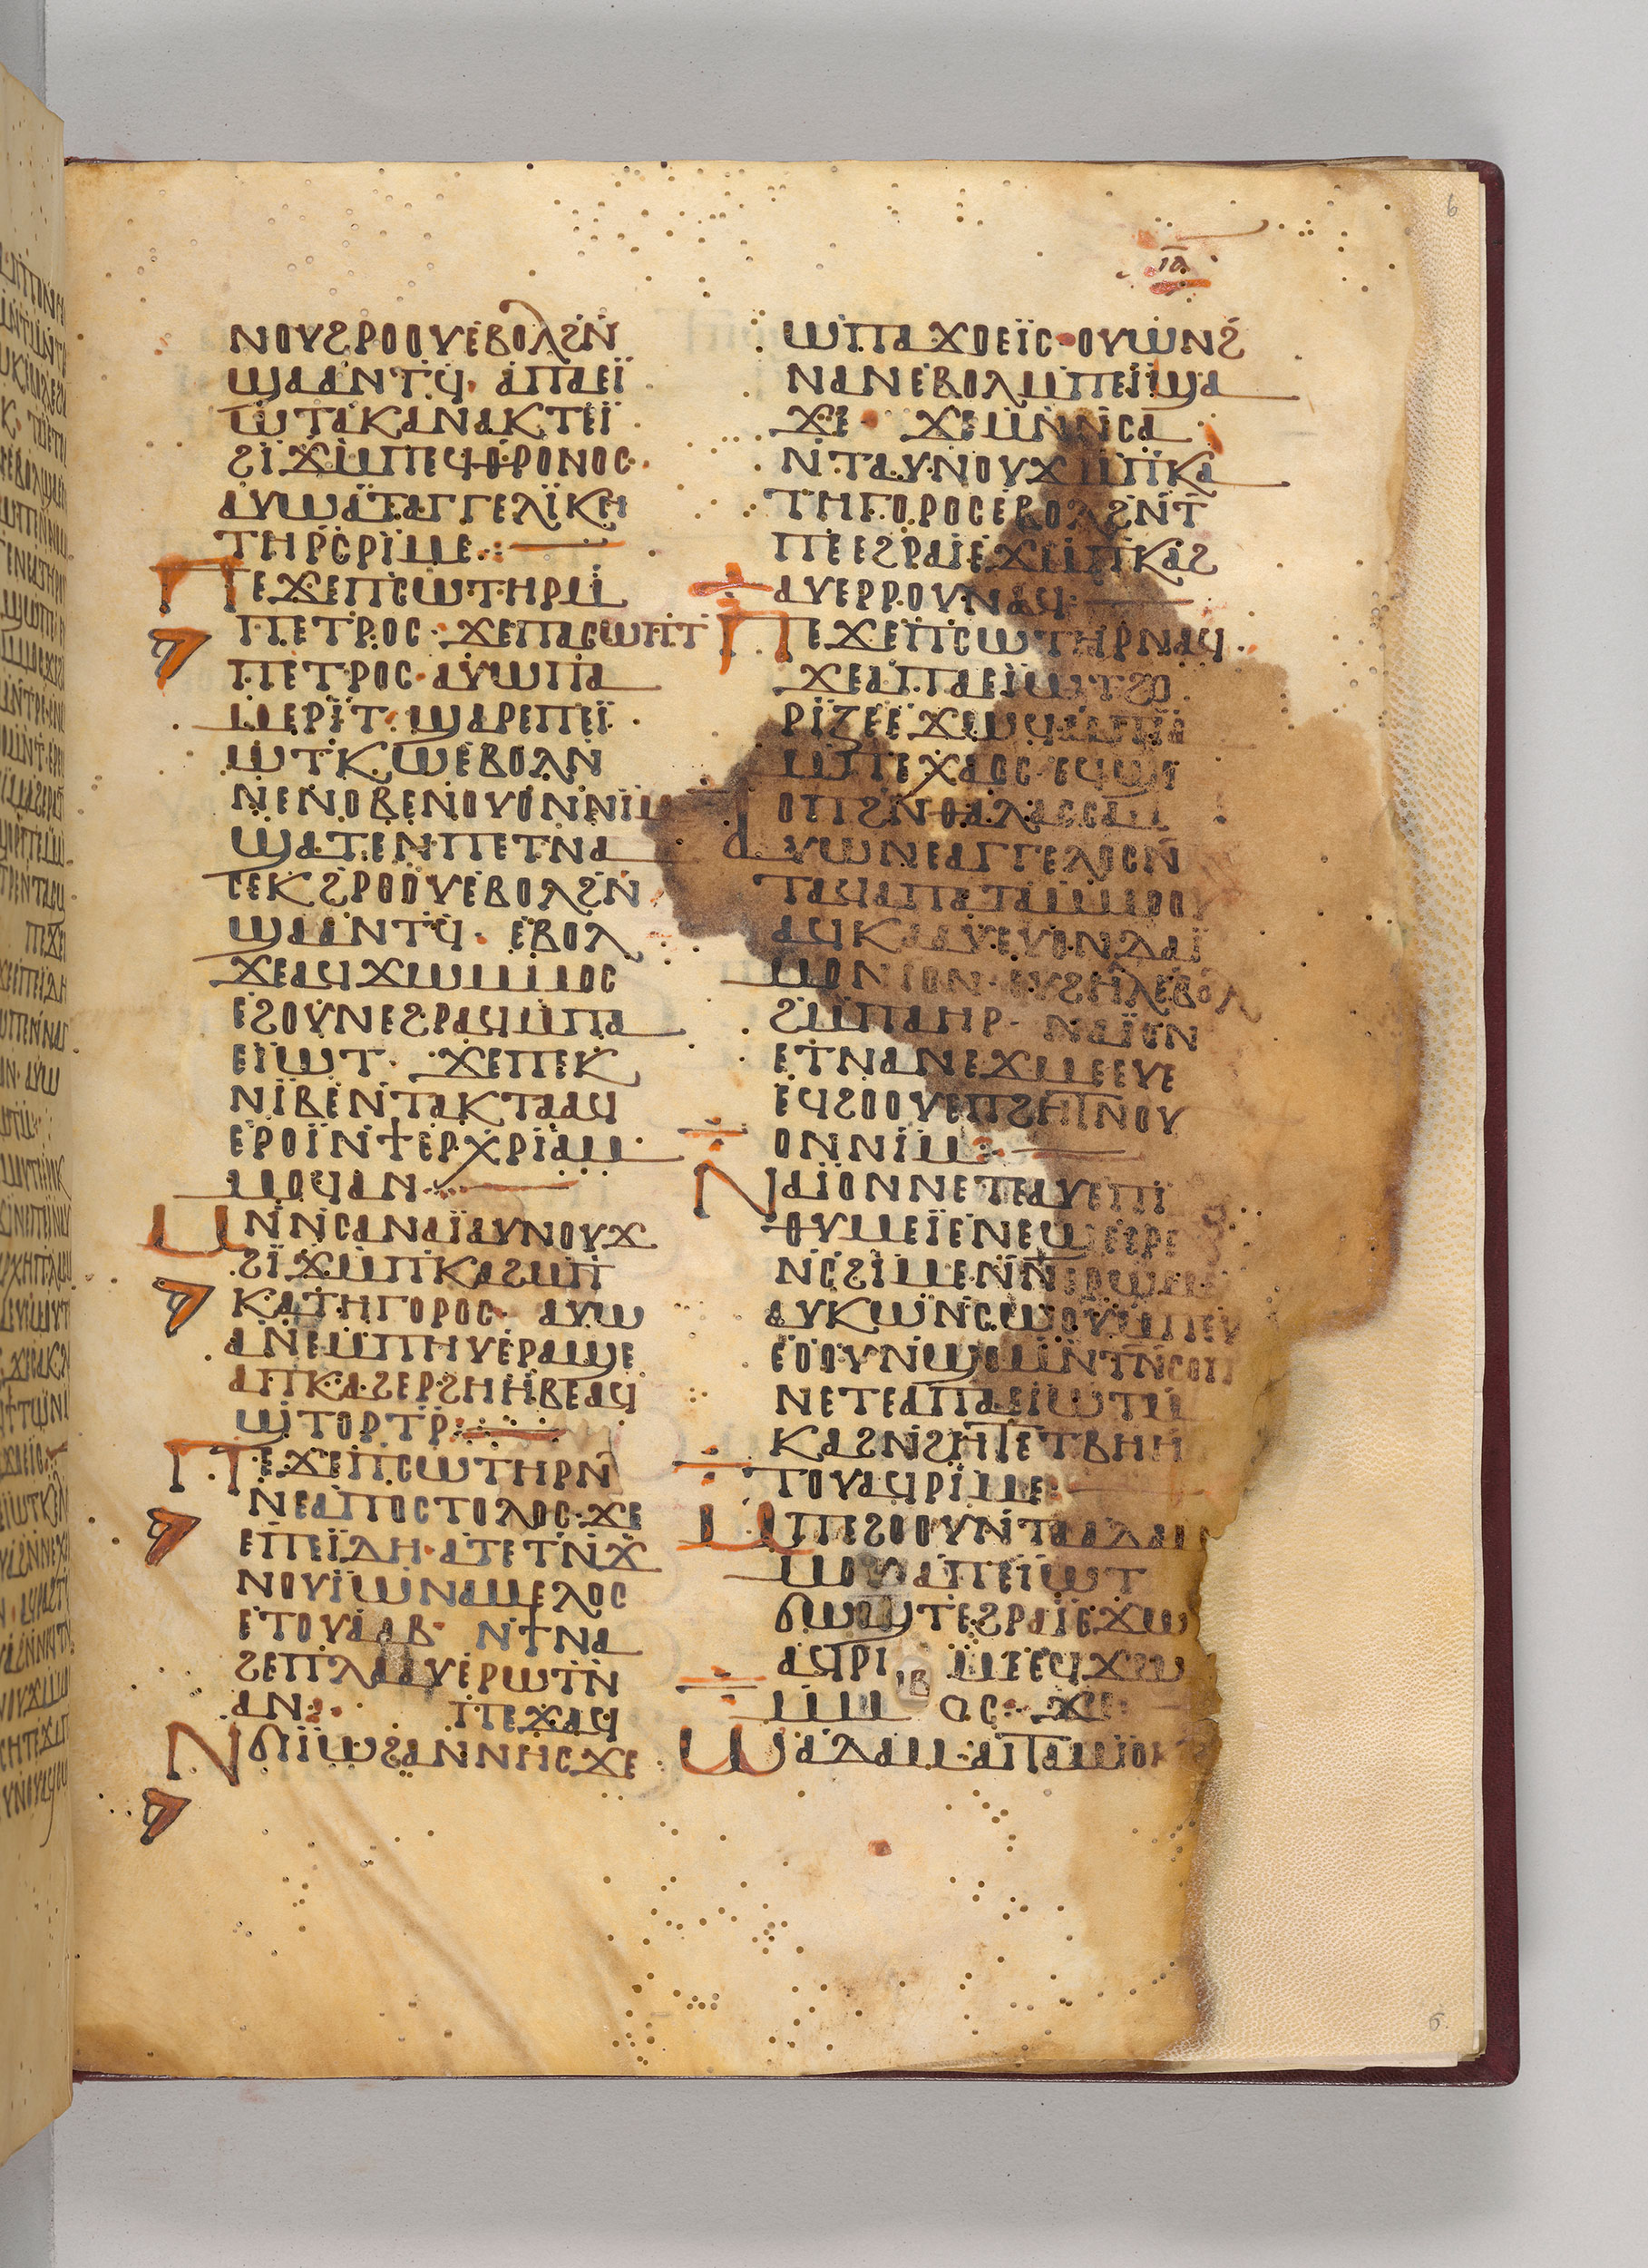 ⲓⲁ
ⲛⲟⲩϩⲣⲟⲟⲩⲉⲃⲟⲗϩⲛ̄
ϣⲁⲁⲛⲧϥ· ⲁⲡⲁⲉⲓ̈
ⲱⲧⲁⲕⲁⲛⲁⲕⲧⲉⲓ̈
ϩⲓϫⲙ̄ⲡⲉϥⲑⲣⲟⲛⲟⲥ·
ⲁⲩⲱⲁ̈ⲧⲁⲅⲅⲉⲗⲓ̈ⲕⲏ
ⲧⲏⲣⲥⲣⲓⲙⲉ·:
ⲡⲉϫⲉⲡⲥⲱⲧⲏⲣⲙ̄
ⲡⲉⲧⲣⲟⲥ· ϫⲉⲡⲁⲥⲱⲡⲧ̄
ⲡⲉⲧⲣⲟⲥ·ⲁⲩⲱⲡⲁ
ⲙⲉⲣⲓ̈ⲧ· ϣⲁⲣⲉⲡⲉⲓ̈
ⲱⲧⲕⲱⲉⲃⲟⲗⲛ̄
ⲛⲉⲛⲟⲃⲉⲛⲟⲩⲟⲛⲛⲓⲙ
ϣⲁⲧⲉⲛⲡⲉⲧⲛⲁ
ⲧⲉⲕϩⲣⲟⲟⲩⲉⲃⲟⲗϩⲛ̄
ϣⲁⲁⲛⲧϥ· ⲉⲃⲟⲗ
ϫⲉⲁϥϫⲱⲙⲙⲟⲥ
ⲉϩⲟⲩⲛⲉϩⲣⲁϥⲙ̄ⲡⲁ
ⲉⲓ̈ⲱⲧ· ϫⲉⲡⲉⲕ
ⲛⲓⲃⲉⲛⲧⲁⲕⲧⲁⲁϥ
ⲉⲣⲟⲓ̈ⲛϯⲉⲣⲭⲣⲓ̈ⲁⲙ
ⲙⲟϥⲁⲛ
ⲙⲛ̄ⲛ̄ⲥⲁⲛⲁⲓ̈ⲁⲩⲛⲟⲩϫ
ϩⲓ̈ϫⲙ̄ⲡⲕⲁϩⲙ̄ⲡ̄
ⲕⲁⲧⲏⲅⲟⲣⲟⲥ· ⲁⲩⲱ
ⲁⲛⲉⲙⲡⲏⲩⲉⲣⲁϣⲉ
ⲁⲡⲕⲁϩⲉⲣϩⲏⲏⲃⲉⲁϥ
ϣⲧⲟⲣⲧⲣ̄
ⲡⲉϫⲉⲡⲥⲱⲧⲏⲣⲛ̄
ⲛⲉⲁⲡⲟⲥⲧⲟⲗⲟⲥ·ϫⲉ
ⲉⲡⲉⲓ̈ⲇⲏ·ⲁⲧⲉⲧⲛ̄ϫ
ⲛⲟⲩⲓ̈ⲱⲛⲁⲙⲉⲗⲟⲥ
ⲉⲧⲟⲩⲁⲁⲃ· ⲛϯⲛⲁ
ϩⲉⲡⲗⲁⲁⲩⲉⲣⲱⲧⲛ̄
ⲁⲛ·: ⲡⲉϫⲁϥ
ⲛϭⲓⲓ̈ⲱϩⲁⲛⲛⲏⲥϫⲉ
ⲱⲡⲁϫⲟⲉⲓ̈ⲥ·ⲟⲩⲱⲛϩ
ⲛⲁⲛⲉⲃⲟⲗⲙⲡⲉⲓ̈ϣⲁ
ϫⲉ· ϫⲉⲙⲛ̄ⲛⲥⲁ
ⲛⲧⲁⲩⲛⲟⲩϫⲙ̄ⲡ̄ⲕⲁ
ⲧⲏⲅⲟⲣⲟⲥⲉⲃⲟⲗϩⲛ̄ⲧ
ⲡⲉⲉϩⲣⲁⲓⲉϫⲙ̄ⲡⲕⲁϩ
ⲁⲩⲉⲣⲣⲟⲩⲛⲁϥ·
ⲡⲉϫⲉⲡⲥⲱⲧⲏⲣⲛⲁϥ
ϫⲉⲁⲡⲁⲉⲓⲱⲧϩⲟ
ⲣⲓ̈ⲍⲉⲉϫⲱϥ
ⲙ̄ⲡⲉⲭⲁⲟⲥ
ⲟⲡϩⲛⲑⲁⲗⲁⲥⲥⲁ
ⲁⲩⲱⲛⲉⲁⲅⲅⲉⲗⲟⲥⲛ̄
ⲧⲁϥⲁⲡⲁⲧⲁⲙⲙⲟⲟⲩ
ⲁϥⲕⲁⲁⲩⲉⲩⲟⲛⲇⲁⲓ̈
ⲙⲟⲛⲓⲟⲛ·ⲉⲩϩⲏⲗⲉⲃⲟⲗ
ϩⲙ̄ⲡⲁⲏⲣ· ⲛⲁⲓ̈ⲟⲛ
ⲉⲧⲛⲁⲛⲉϫⲙⲉⲉⲩⲉ
ⲉϥϩⲟⲟⲩⲉⲡϩⲏⲧⲛⲟⲩ
ⲟⲛⲛⲓⲙ
ⲛⲁⲓⲟⲛⲛⲉⲧⲉⲁⲩⲉⲡⲓ̈
ⲑⲩⲙⲉⲓ̈ⲉⲛⲉϣⲉⲉⲣⲉ
ⲛ̄ⲥϩⲓⲙⲉⲛ̄ⲛ̄ⲣⲱⲙⲉ
ⲁⲩⲕⲱⲛ̄ⲥⲱⲟⲩⲙ̄ⲡⲉⲩ
ⲉⲟⲟⲩⲛϣⲟⲙⲛ̄ⲧⲛ̄ⲥⲟⲡ
ⲛⲉⲧⲉⲁⲡⲁⲉⲓⲱⲧⲙ̄
ⲕⲁϩⲛϩⲏⲧⲉⲧⲃⲏⲏ
ⲧⲟⲩⲁϥⲣⲓⲙⲉ
ⲙⲡⲉϩⲟⲟⲩⲛⲧⲁⲁⲇⲁⲙ
ⲙⲟⲩⲁⲡⲉⲓ̈ⲱⲧ
ϭⲱϣⲧⲉϩⲣⲁⲓⲉϫⲱ
ⲁϥⲣⲓ ⲙⲉⲉϥϫⲱ
ⲙⲙ ⲟⲥ· ϫⲉ
ⲱⲁⲇⲁⲙ·ⲁⲓⲧⲁⲙⲓⲟⲕ